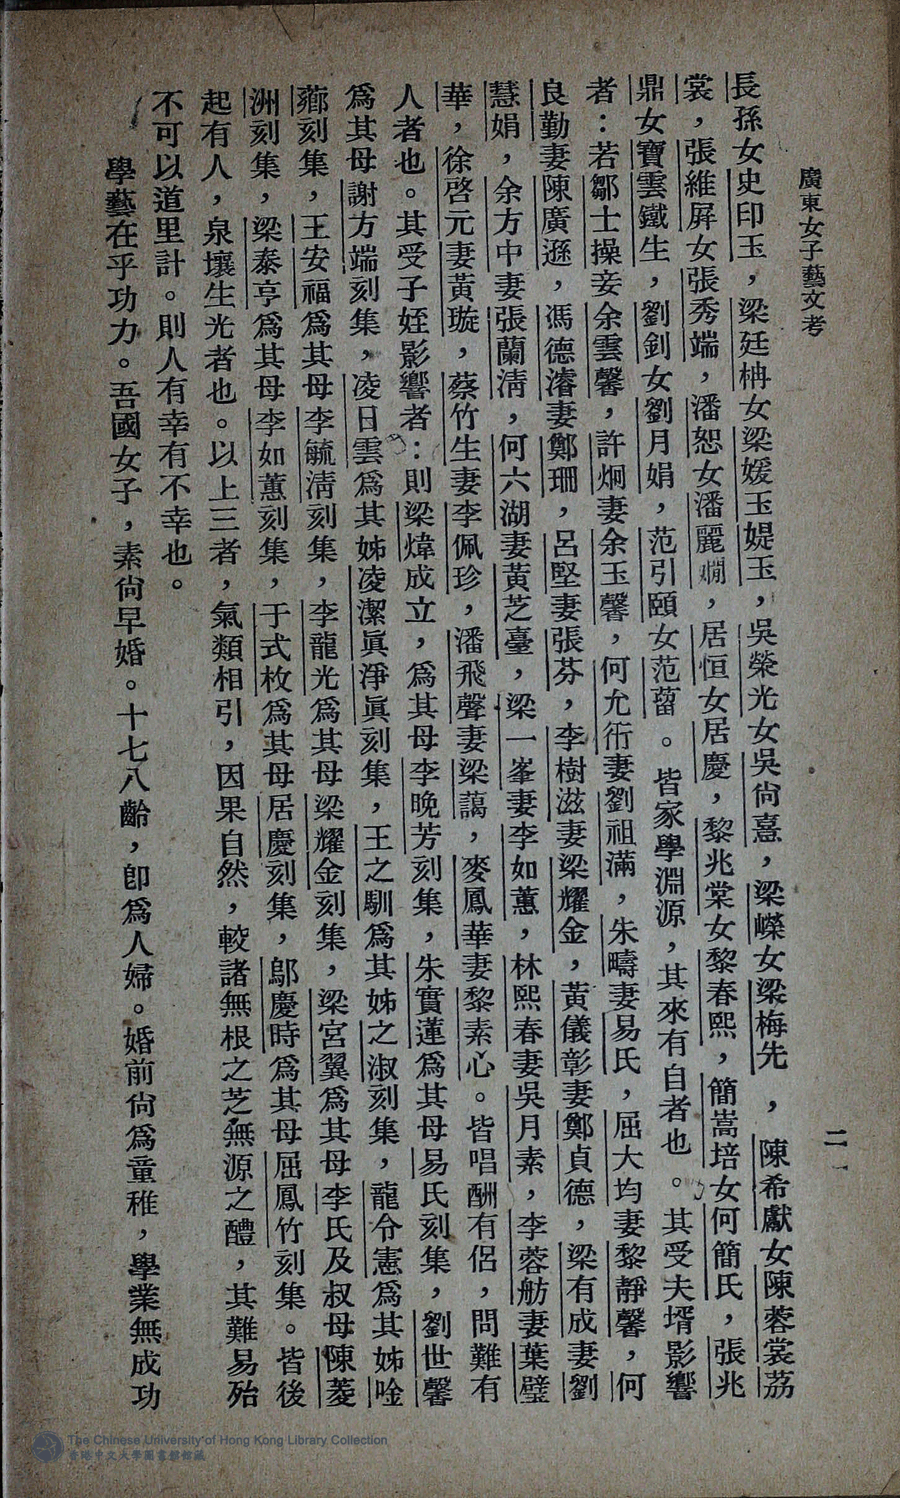 廣東女子藝文考
二
長孫女史印玉，梁廷枏女梁媛玉媞玉，吳榮光女吳尙憙，梁嶸女梁梅先，陳希獻女陳蓉裳荔
裳，張維屛女張秀端，潘恕女潘麗嫻，居恒女居慶，黎兆棠女黎春熙，簡嵩培女何簡氏，張兆
鼎女寶雲鐵生，劉釗女劉月娟，范引頤女范蒥。皆家學淵源，其來有自者也。其受夫壻影響
者：若鄒士操妾余雲馨，許炯妻余玉馨，何允衎妻劉祖滿，朱疇妻易氏，屈大均妻黎靜馨，何
良勤妻陳廣遜，馮德濬妻鄭珊，呂堅妻張芬，李樹滋妻梁耀金，黃儀彰妻鄭貞德，梁有成妻劉
慧娟，余方中妻張蘭淸，何六湖妻黃芝臺，梁一峯妻李如蕙，林熙春妻吳月素，李蓉舫妻葉璧
華，徐啓元妻黃璇，蔡竹生妻李佩珍，潘飛聲妻梁藹，麥鳳華妻黎素心。皆唱酬有侶，問難有
人者也。其受子姪影響者：則梁煒成立，爲其母李晚芳刻集，朱實蓮爲其母易氏刻集，劉世馨
爲其母謝方端刻集，凌日雲爲其姊凌潔眞淨眞刻集，王之馴爲其姊之淑刻集，龍令憲爲其姊唫
薌刻集，王安福爲其母李毓淸刻集，李龍光爲其母梁耀金刻集，梁宮翼爲其母李氏及叔母陳菱
洲刻集，梁泰亨爲其母李如蕙刻集，于式枚爲其母居慶刻集，鄔慶時爲其母屈鳳竹刻集。皆後
起有人，泉壤生光者也。以上三者，氣類相引，因果自然，較諸無根之芝無源之醴，其難易殆
不可以道里計。則人有幸有不幸也。
學藝在乎功力。吾國女子，素尙早婚。十七八齡，卽爲人婦。婚前尙爲童稚，學業無成功
The Chinese University of Hong Kong Library Collection
香港中文大學圖書館館藏